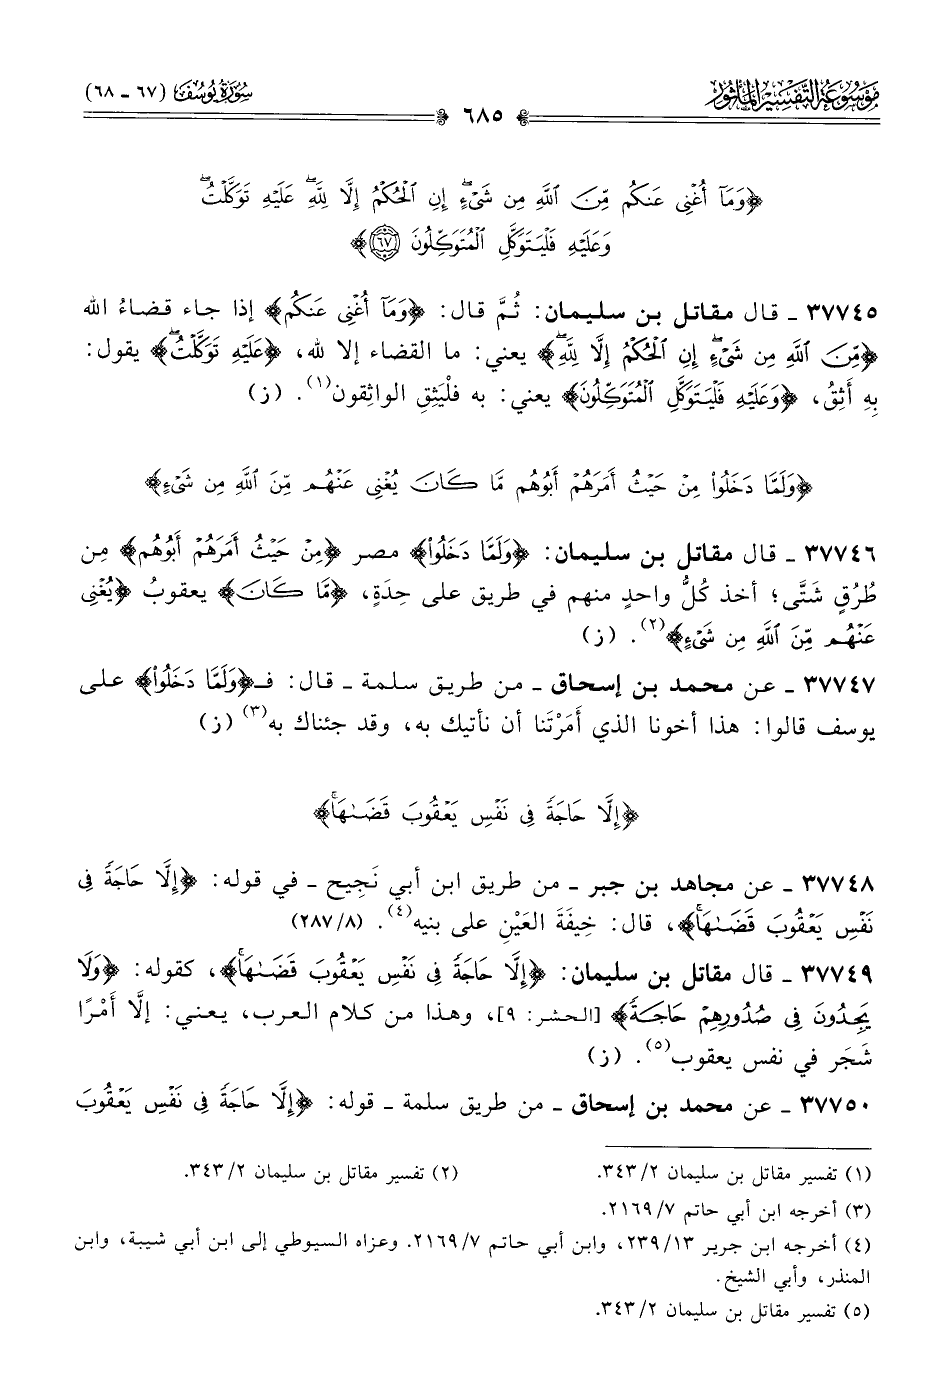 مَوْسُوعَةُ التَّفْسِيرِ المَأْثُور
سُورَةُ يُوسُفَ (٦٧ - ٦٨)
٦٨٥
﴿وَمَآ أُغْنِى عَنكُم مِّنَ ٱللَّهِ مِن شَىْءٍۖ إِنِ ٱلْحُكْمُ إِلَّا لِلَّهِۖ عَلَيْهِ تَوَكَّلْتُۖ
وَعَلَيْهِ فَلْيَتَوَكَّلِ ٱلْمُتَوَكِّلُونَ ٦٧﴾
٣٧٧٤٥ - قال مقاتل بن سليمان: ثُمَّ قال: ﴿وَمَآ أُغْنِى عَنكُم﴾ إذا جاء قضاءُ الله
﴿مِّنَ ٱللَّهِ مِن شَىْءٍۖ إِنِ ٱلْحُكْمُ إِلَّا لِلَّهِۖ﴾ يعني: ما القضاء إلا لله، ﴿عَلَيْهِ تَوَكَّلْتُۖ﴾ يقول:
بِهِ أَثِقُ، ﴿وَعَلَيْهِ فَلْيَتَوَكَّلِ ٱلْمُتَوَكِّلُونَ﴾ يعني: به فلْيَثِقِ الواثِقون(١). (ز)
﴿وَلَمَّا دَخَلُواْ مِنْ حَيْثُ أَمَرَهُمْ أَبُوهُم مَّا كَانَ يُغْنِى عَنْهُم مِّنَ ٱللَّهِ مِن شَىْءٍ﴾
٣٧٧٤٦ - قال مقاتل بن سليمان: ﴿وَلَمَّا دَخَلُواْ﴾ مصر ﴿مِنْ حَيْثُ أَمَرَهُمْ أَبُوهُم﴾ مِن
طُرُقٍ شَتَّى؛ أخذ كُلُّ واحدٍ منهم في طريق على حِدَةٍ، ﴿مَّا كَانَ﴾ يعقوبُ ﴿يُغْنِى
عَنْهُم مِّنَ ٱللَّهِ مِن شَىْءٍ﴾(٢). (ز)
٣٧٧٤٧ - عن محمد بن إسحاق - من طريق سلمة - قال: فـ﴿وَلَمَّا دَخَلُواْ﴾ على
يوسف قالوا: هذا أخونا الذي أَمَرْتَنا أن نأتيك به، وقد جئناك به(٣) (ز)
﴿إِلَّا حَاجَةً فِى نَفْسِ يَعْقُوبَ قَضَىٰهَاۚ﴾
٣٧٧٤٨ - عن مجاهد بن جبر - من طريق ابن أبي نَجِيح - في قوله: ﴿إِلَّا حَاجَةً فِى
نَفْسِ يَعْقُوبَ قَضَىٰهَاۚ﴾، قال: خِيفَةَ العَيْنِ على بنيه(٤). (٢٨٧/٨)
٣٧٧٤٩ - قال مقاتل بن سليمان: ﴿إِلَّا حَاجَةً فِى نَفْسِ يَعْقُوبَ قَضَىٰهَاۚ﴾، كقوله: ﴿وَلَا
يَجِدُونَ فِى صُدُورِهِمْ حَاجَةً﴾ [الحشر: ٩]، وهذا من كلام العرب، يعني: إلَّا أَمْرًا
شَجَر في نفس يعقوب(٥). (ز)
٣٧٧٥٠ - عن محمد بن إسحاق - من طريق سلمة - قوله: ﴿إِلَّا حَاجَةً فِى نَفْسِ يَعْقُوبَ
(١) تفسير مقاتل بن سليمان ٣٤٣/٢. (٢) تفسير مقاتل بن سليمان ٣٤٣/٢.
(٣) أخرجه ابن أبي حاتم ٢١٦٩/٧.
(٤) أخرجه ابن جرير ٢٣٩/١٣، وابن أبي حاتم ٢١٦٩/٧. وعزاه السيوطي إلى ابن أبي شيبة، وابن
المنذر، وأبي الشيخ.
(٥) تفسير مقاتل بن سليمان ٣٤٣/٢.